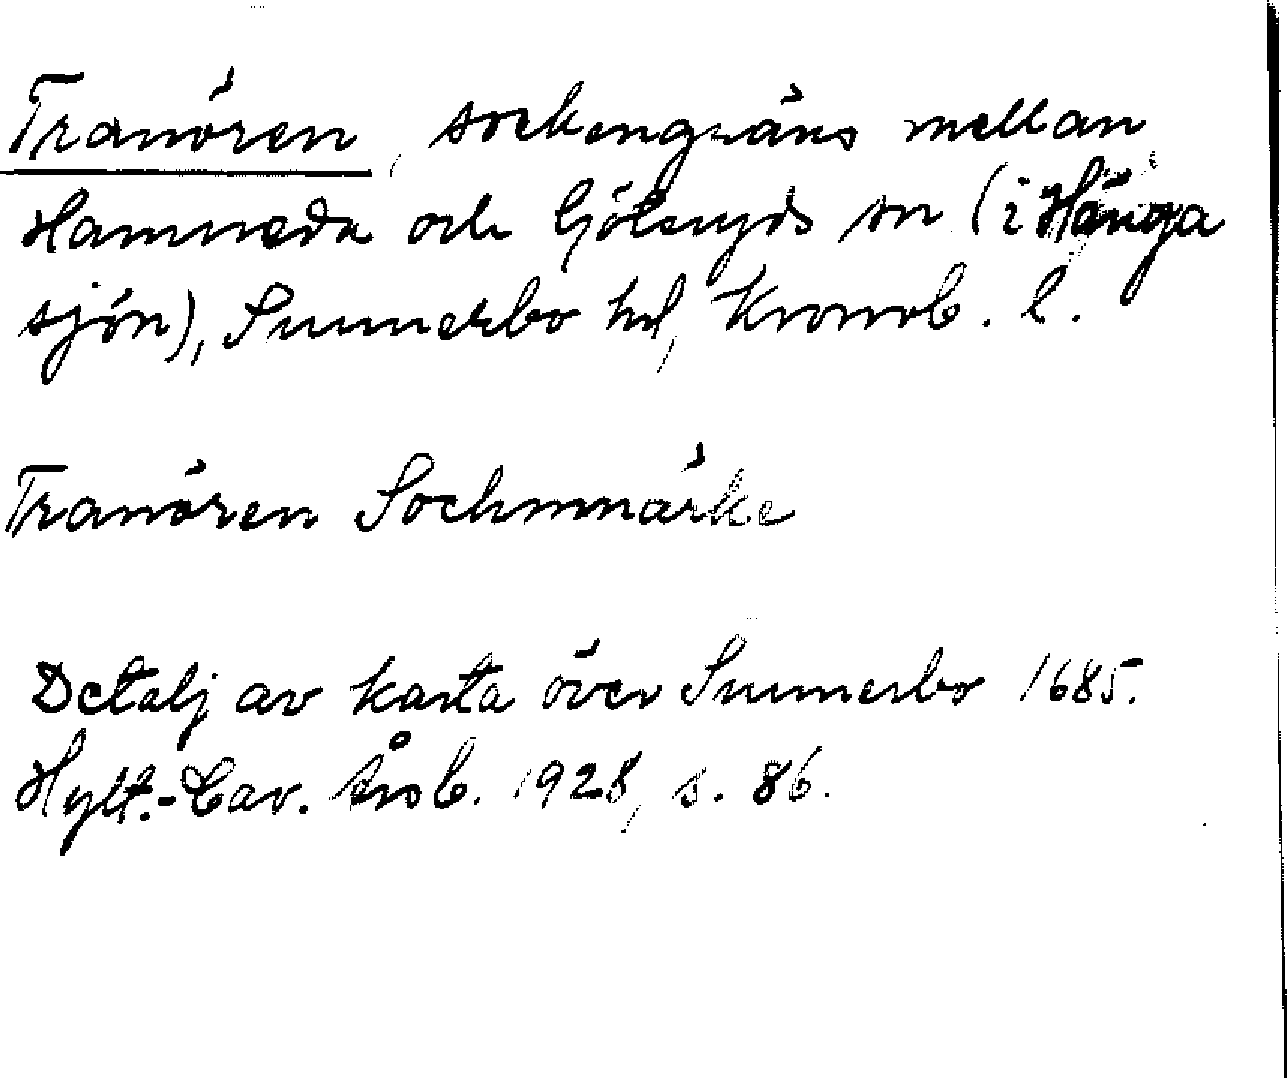 Tranören, sockengräns mellan
Hamneda och Göteryds sn (i Hånga
sjön), Sunnerbo hd, Kronob. l.
Tranören Sochnmärke
Detalj av karta över Sunnerbo 1685.
Hylt.-Cav. årsb. 1928, s. 86.